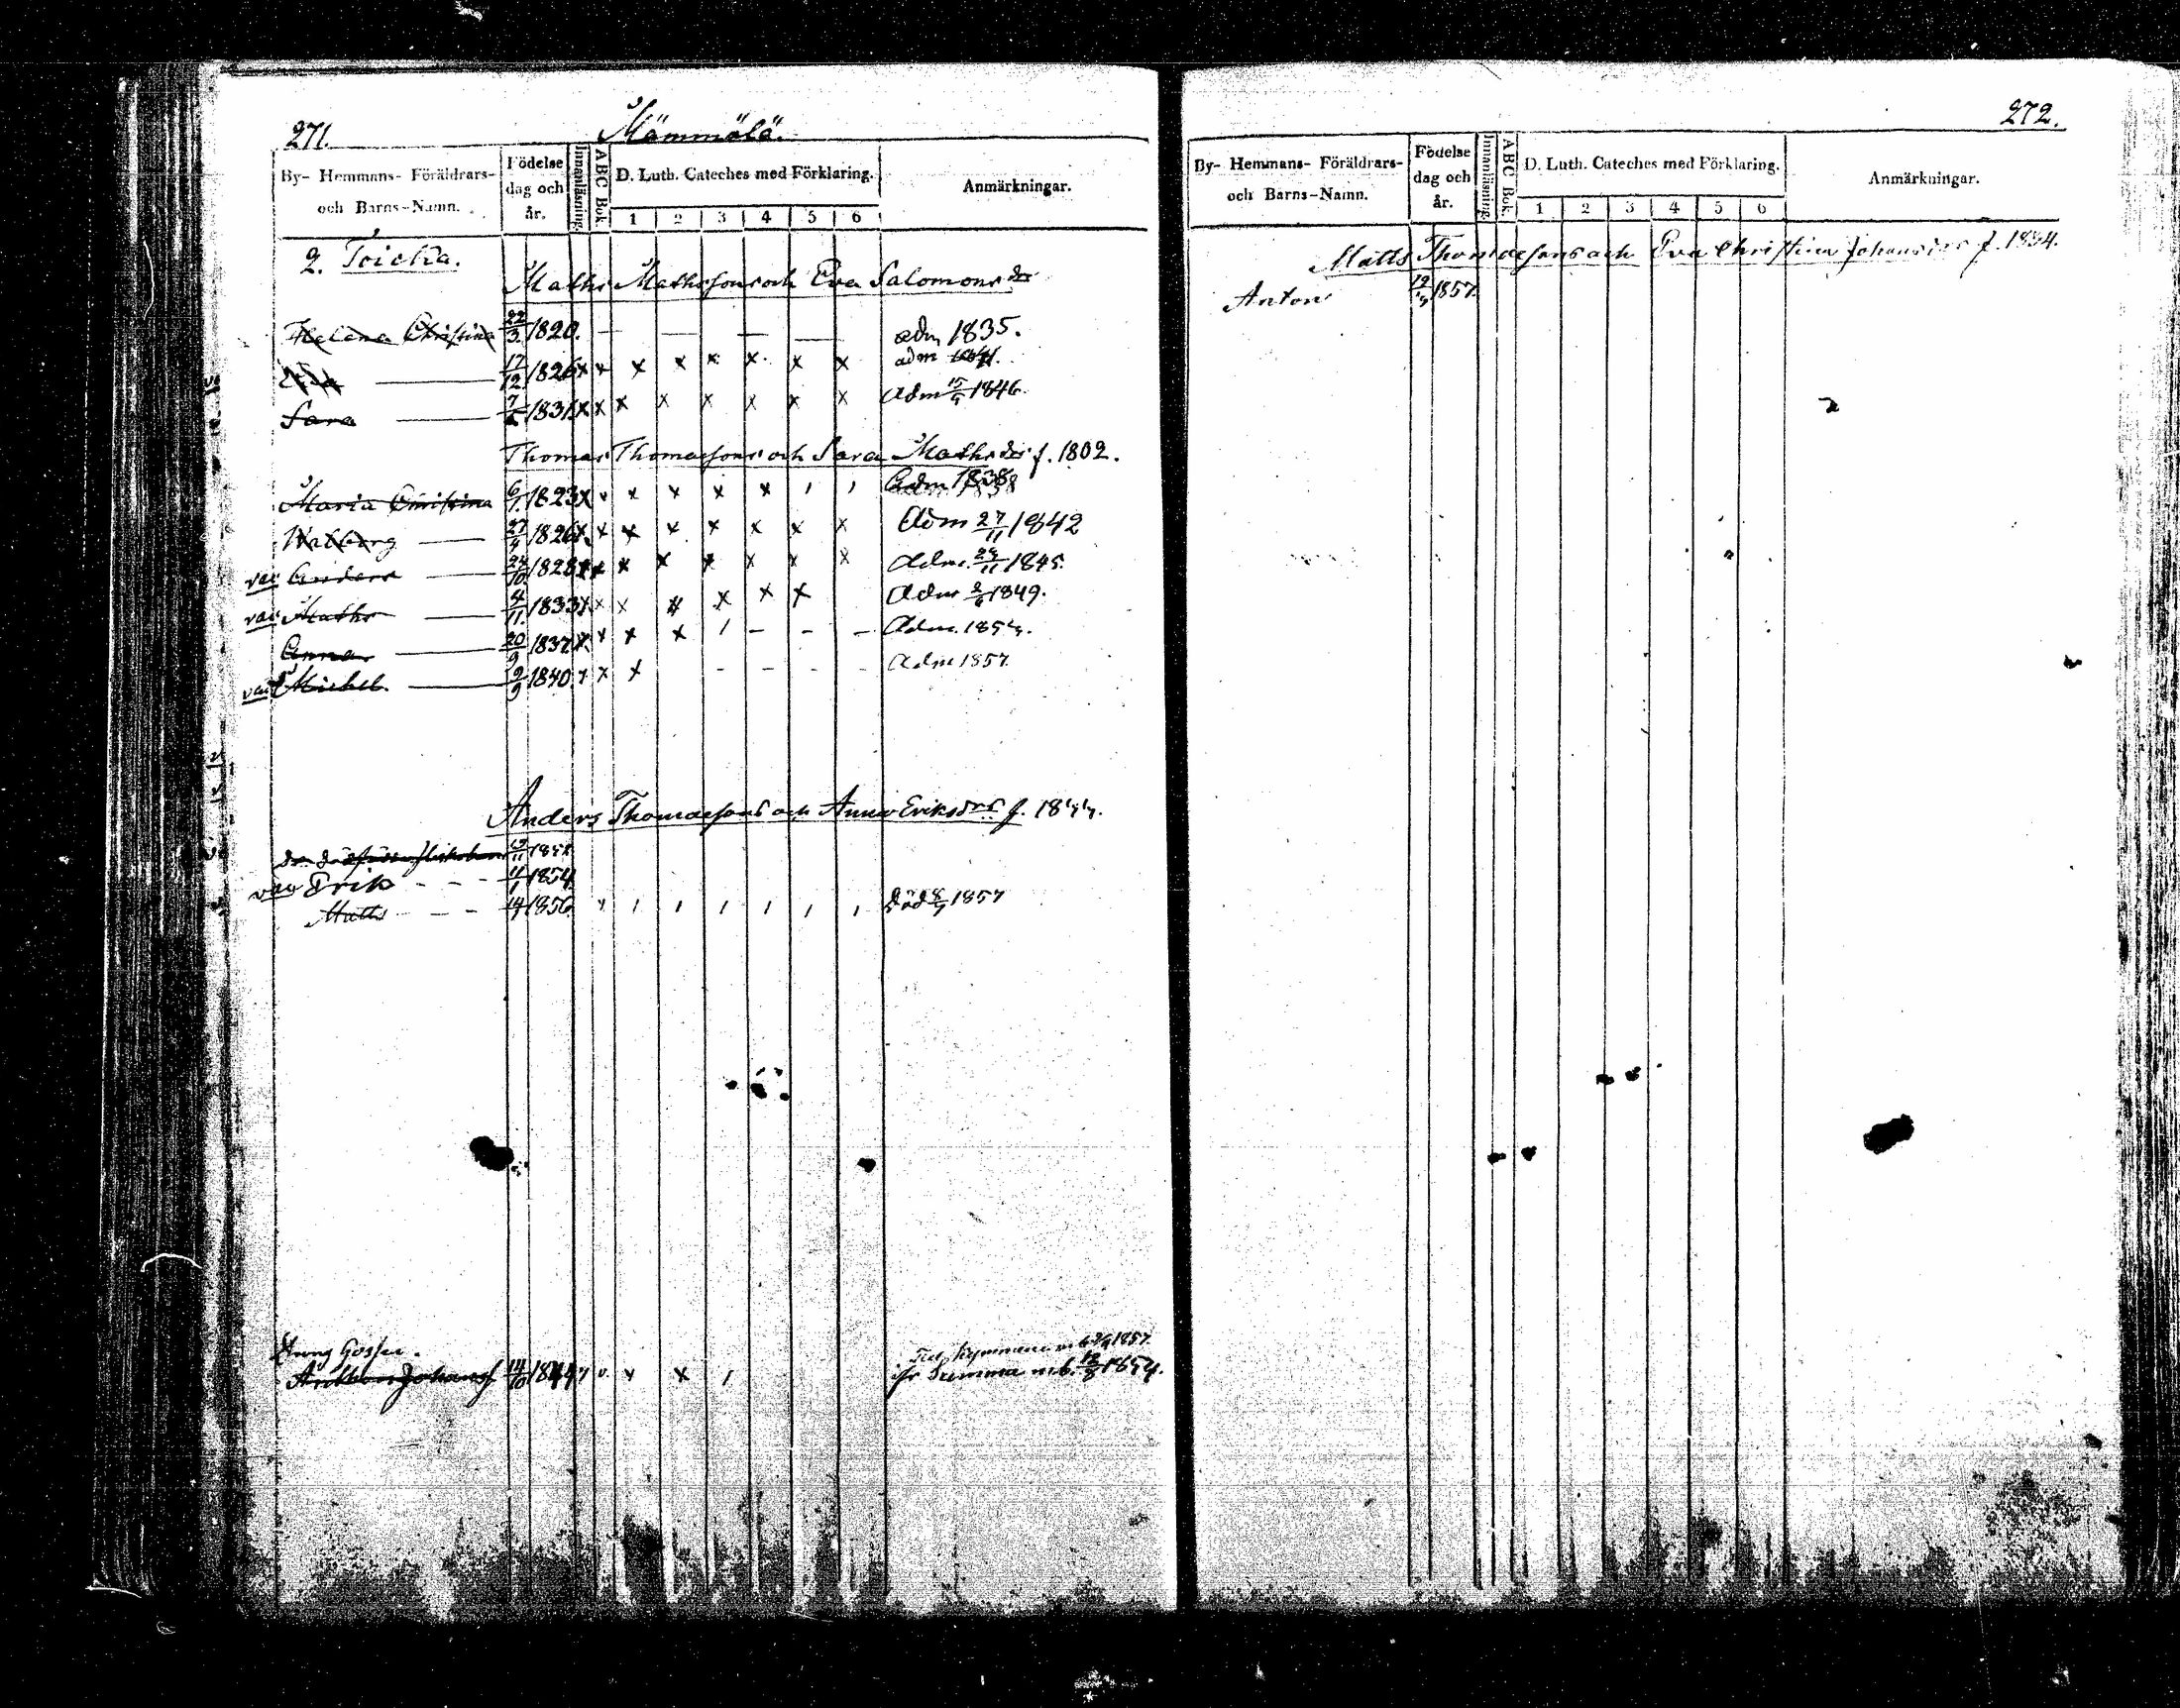 271.
Mämmälä.
By- Hemmans- Föräldrars-
och Barns-Namn.
Födelse
dag och
år.
Innanläsning.
ABC Bok.
D. Luth. Cateches med Förklaring.
1 2 3 4 5 6
Anmärkningar.
2. Toickα.
Maths Mathssons och Eva Salomons dr
Helena Christina 22/3 1820. — — — — adm 1835.
17/12 1826 x x x x x x x x adm
Sara 7 1831 x x x x x x x x adm 1846.
Thomas Thomassons och Sara Maths dr f. 1802.
Maria Christina 6/1. 1823 x x x x x x , , Adm 1838
Walborg 27/4 1826 x x x x x x x Adm 27/11 1842
vac Anders 24/10. 1828 x x x x x x x x Adm. 1845.
vac Maths 4/11. 1833 x x x x x x x Adm 1849.
Anna 20/9 1837 x x x x / - - - Adm. 1854.
vac Michel. 9/9 1840 x x x - - - - Adm 1857.
Anders Thomassons och Anna Eriksdrs f.
vac Erik - - - 4/1 1854
Matts - - - 1856 , , , , , , död 1857
Johansf 14/10 184
Till Kymmene 1857
ifr Summa m.b. 1854.
272.
By- Hemmans- Föräldrars-
och Barns-Namn.
Födelse
dag och
år.
Innanläsning.
ABC Bok.
D. Luth. Cateches med Förklaring.
1 2 3 4 5 6
Anmärkningar.
Matts Thomassons och Eva Christina Johansdrs f. 1834.
Anton 1857.